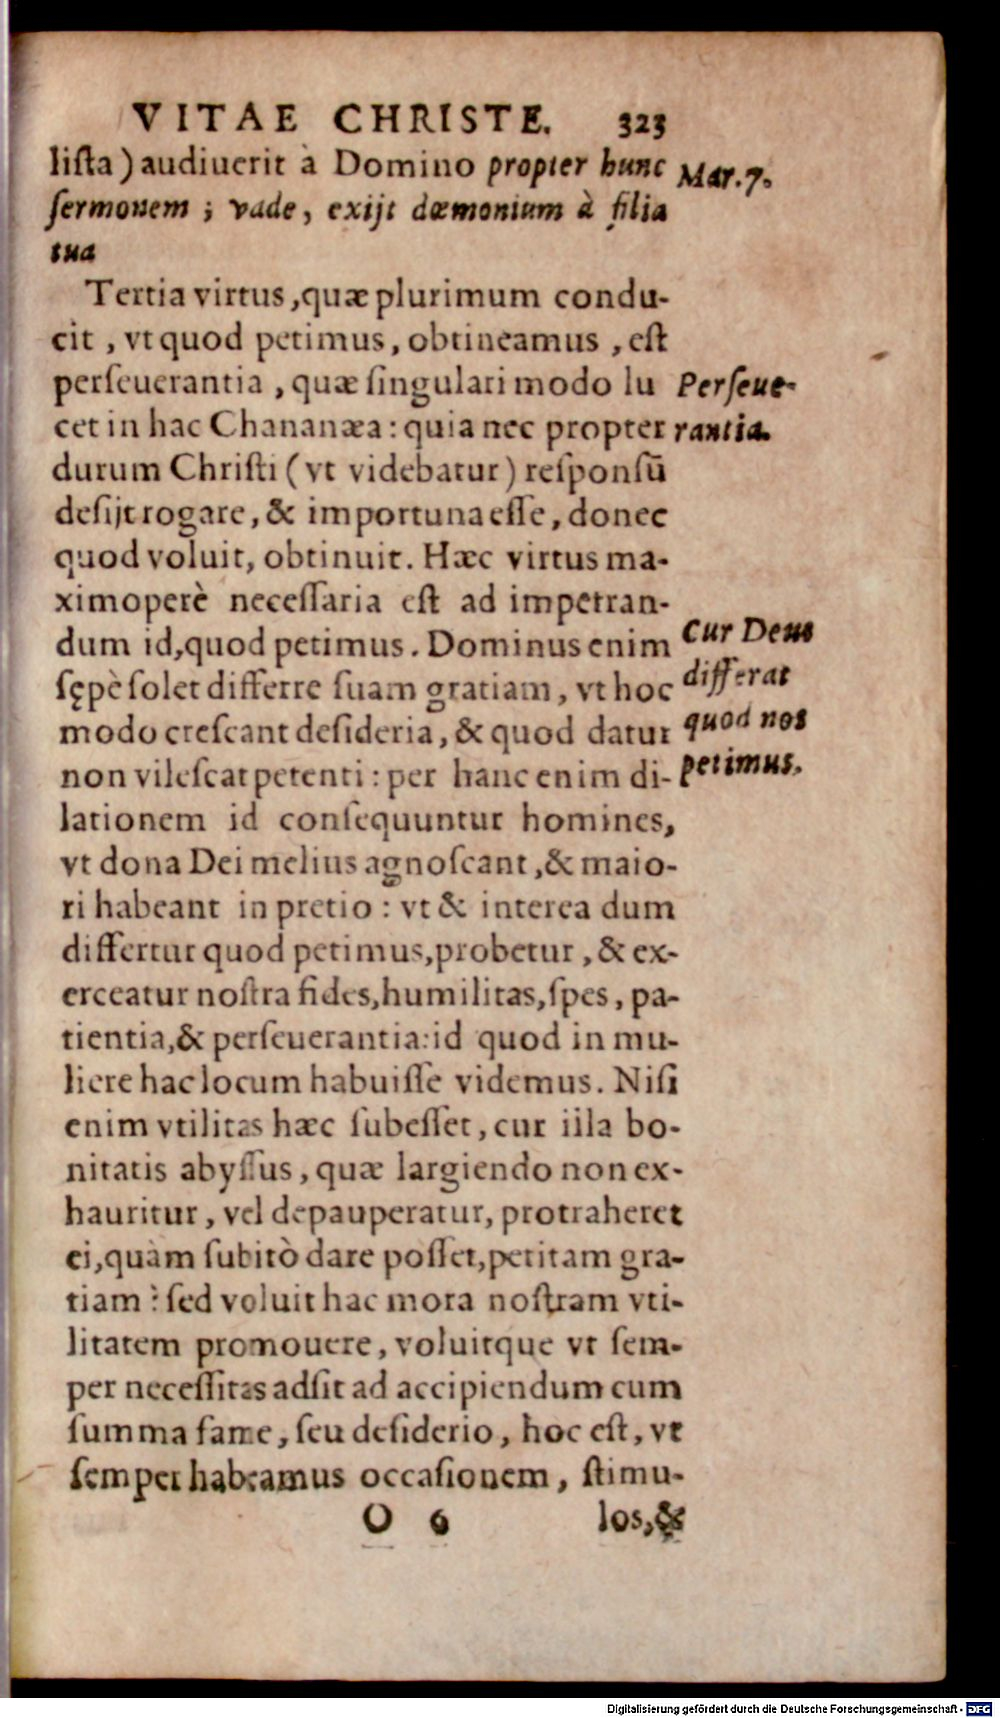 VITAE CHRISTE. 323
lista) audiuerit à Domino propter hunc
Mar. 7.
ſermonem ; vade, exijt dæmonium à filia
tua
Tertia virtus, quæ plurimum condu-
cit, vt quod petimus, obtineamus, eſt
perſeuerantia, quæ ſingulari modo lu
Perſeue-
cet in hac Chananæa: quia nec propter
rantia.
durum Chriſti (vt videbatur) reſponſū
deſijt rogare, & importuna eſſe, donec
quod voluit, obtinuit. Hæc virtus ma-
ximoperè neceſſaria eſt ad impetran-
dum id, quod petimus. Dominus enim
Cur Deus
ſępè ſolet differre ſuam gratiam, vt hoc
differat
modo creſcant deſideria, & quod datur
quod nos
non vileſcat petenti: per hanc enim di-
petimus.
lationem id conſequuntur homines,
vt dona Dei melius agnoſcant, & maio-
ri habeant in pretio: vt & interea dum
differtur quod petimus, probetur, & ex-
erceatur noſtra fides, humilitas, ſpes, pa-
tientia, & perſeuerantia: id quod in mu-
liere hac locum habuiſſe videmus. Niſi
enim vtilitas hæc ſubeſſet, cur illa bo-
nitatis abyſſus, quæ largiendo non ex-
hauritur, vel depauperatur, protraheret
ei, quàm ſubitò dare poſſet, petitam gra-
tiam? ſed voluit hac mora noſtram vti-
litatem promouere, voluitque vt ſem-
per neceſſitas adſit ad accipiendum cum
ſumma fame, ſeu deſiderio, hoc eſt, vt
ſemper habeamus occaſionem, ſtimu-
O 6 los, &
Digitalisierung gefördert durch die Deutsche Forschungsgemeinschaft - DFG